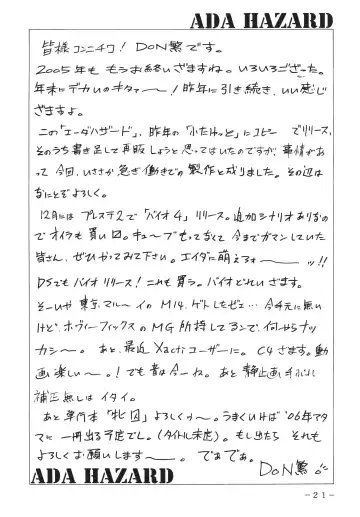 ADA HAZARD
皆様コンニチワ！DoN繁です。
2005年も もうお終いざますね。いろいろござった。
年末にデカいのキター〜！昨年に引き続き、いい感じ
ざますよ。
この「エーダハザード」、昨年の「ふたけっと」にコピー でリリース、
そのうち書き足して再販しようと思ってましたのですが、事情があ
って今回、いささか急ぎ働きでの製作と成りました。その辺は
なにとぞよろしく。
12月には プレステ2で「バイオ4」リリース。追加シナリオありなの
でオイラも買い 。キューブもってなくて今までガマンしていた
皆さん、ぜひやってみて下さい。エイダに萌えろォ〜 ッ!!
DSでもバイオリリース！これも買う。バイオどれいざます。
そーいや東京マルイのM14、ゲトしたゼェ…今手元に無い
けど、ホーウィーフィックスのMG所持してるンで、何やらナツ
カシ〜。あと、最近Xactiユーザーに。C4ざます。動
画楽しい〜。！でも音は今一ね。あと静止画、手ぶれ
補正無しはイタイ。
あと単行本「牝囚」よろしくゥ〜。うまくいけば'06年アタ
マに一冊出る予定でし。(タイトル未定)。もし出たら それも
よろしくお願いします〜。 でわでわ。
DoN繁
ADA HAZARD
－21－